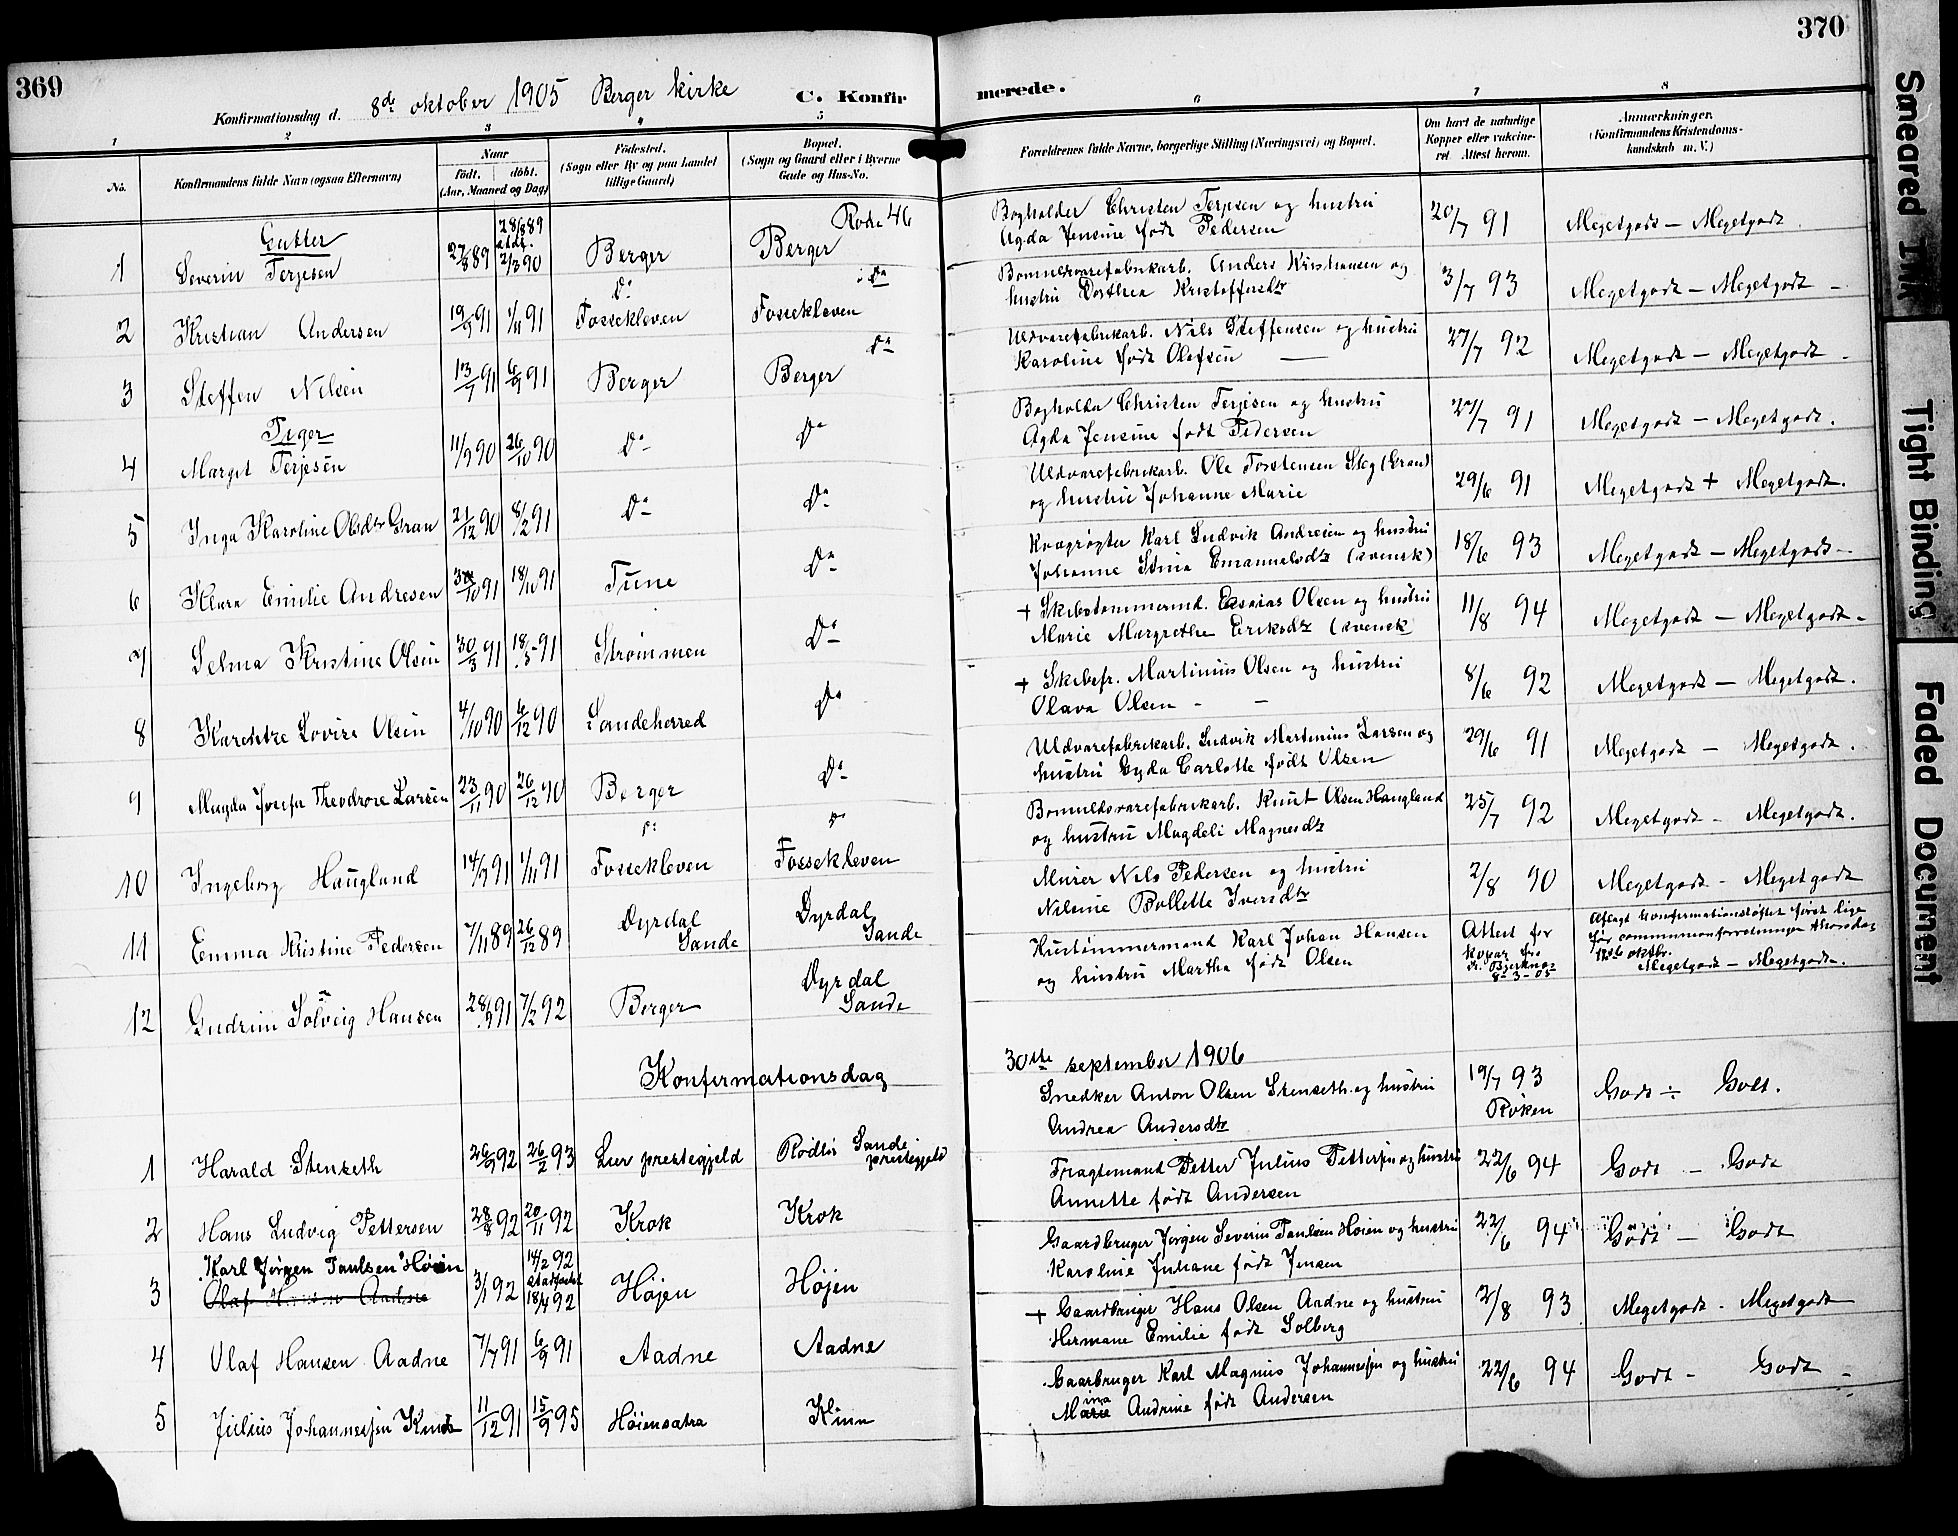 369
370
Konfirmationsdag d. 8de oktober 1905 Berger kirke
C. Konfirmerede.
1 2 3 4 5 6 7 8
No.
Konfirmandens fulde Navn (ogsaa Efternavn)
Naar
Födt. döbt.
(Aar, Maaned og Dag)
Födested.
(Sogn eller By og paa Landet
tillige Gaard)
Bopæl.
(Sogn og Gaard eller i Byerne
Gade og Hus-No.
Forældrenes fulde Navne, borgerlige Stilling (Næringsvei) og Bopæl.
Om havt de naturlige
Kopper eller vakcine-
ret. Attest herom.
Anmærkninger.
(Konfirmandens Kristendoms-
kundskab m. V.)
Gutter
1 Severin Terjesen 27/8 89 28/8 89 2/3 90 Berger Berger Rode 46
Bogholder Christen Terjesen og hustru
Agda Jensine født Pedersen
20/7 91 Megetgodt — Megetgodt.
2 Kristian Andersen 19/9 91 1/11 91 Do Fossekleven Fossekleven Do
Bomuldsvarefabrikarb. Anders Kristiansen og
hustru Dorthea Kristoffersdtr
3/7 93 Megetgodt — Megetgodt —
3 Steffen Nilsen 13/7 91 6/9 91 Berger Berger Do
Uldvarefabrikarb. Nils Steffensen og hustru
Karoline født Olefsen —
27/7 92 Megetgodt — Megetgodt.
Piger
4 Margit Terjesen 11/9 90 26/10 90 Do Do
Bogholder Christen Terjesen og hustru
Agda Jensine født Pedersen
27/7 91 Megetgodt — Megetgodt.
5 Inga Karoline Olsdtr Gran 21/12 90 8/2 91 Do Do
Uldvarefabrikarb. Ole Torstensen Steg (Gran)
og hustru Johanne Marie
29/6 91 Megetgodt + Megetgodt.
6 Klara Emilie Andresen 30/10 91 18/10 91 Tune Do
Kvægrøgter Karl Ludvik Andresen og hustru
Johanne Stina Emanuelsdtr (svensk)
18/6 93 Megetgodt — Megetgodt —
7 Selma Kristine Olsen 30/3 91 18/5 91 Strømmen Do
+ Skibstømmermd. Essaias Olsen og hustru
Marie Margrethe Eriksdtr (svensk)
11/8 94 Megetgodt — Megetgodt —
8 Karentze Lovise Olsen 4/10 90 6/12 90 Sandeherred Do
+ Skibsfr. Martinius Olsen og hustru
Olava Olsen - —
8/6 92 Megetgodt — Megetgodt.
9 Magda Josefa Theodrore Larsen 23/11 90 26/12 90 Berger Do
Uldvarefabrikarb. Ludvik Martinius Larsen og
hustru Gyda Carlotte født Olsen
29/6 91 Megetgodt — Megetgodt.
10 Ingeborg Haugland 14/9 91 1/11 91 Do Fossekleven Do Fossekleven
Bomuldsvarefabrikarb. Knut Olsen Haugland
og hustru Magdeli Magnesdtr
25/7 92 Megetgodt — Megetgodt.
11 Emma Kristine Pedersen 7/11 89 26/12 89 Dyrdal Sande Dyrdal Sande
Murer Nils Pedersen og hustru
Nilsine Bollette Iversdtr
2/8 90 Megetgodt - Megetgodt
12 Gudrun Solveig Hansen 28/9 91 7/2 92 Berger Dyrdal Sande
Hustømmermand Karl Johan Hansen
og hustru Martha født Olsen
Attest for
kopar fra
dr. Bjerknes
8-3-05
Aflagt konfirmationsløftet først lige
før communionforretningen thorsdag
12te oktbr.
Megetgodt — Megetgodt.
Konfirmationsdag 30te september 1906
1 Harald Stenseth 26/9 92 26/2 93 Lier prestegjeld Rødlør Sande prestegjeld
Snedker Anton Olsen Stenseth og hustru
Andrea Andersdtr
19/7 93 Røken Godt ÷ Godt.
2 Hans Ludvig Pettersen 28/8 92 20/11 92 Krok Krok
Fragtemand Petter Julius Pettersen og hustru
Annette født Andersen
22/6 94 Godt — Godt
3 Karl Jørgen Paulsen Høien 3/1 92 14/2 92 stadfæstet 18/4 92 Højen Højen
Olaf Hansen Aadne
Gaardbruger Jørgen Severin Paulsen Høien og hustru
Karoline Juliane født Jensen
22/6 94 Godt — Godt
4 Olaf Hansen Aadne 7/7 91 6/9 91 Aadne Aadne
+ Gaardbruger Hans Olsen Aadne og hustru
Hermane Emilie født Solberg
2/8 93 Megetgodt - Megetgodt
5 Julius Johannessen 11/12 91 15/9 95 Høiensætra Klinn
Gaarbruger Karl Magnus Johannessen og hustru
Marie ina Andrine født Andersen
22/6 94 Godt — Godt
Smeared Ink
Tight Binding
Faded Document